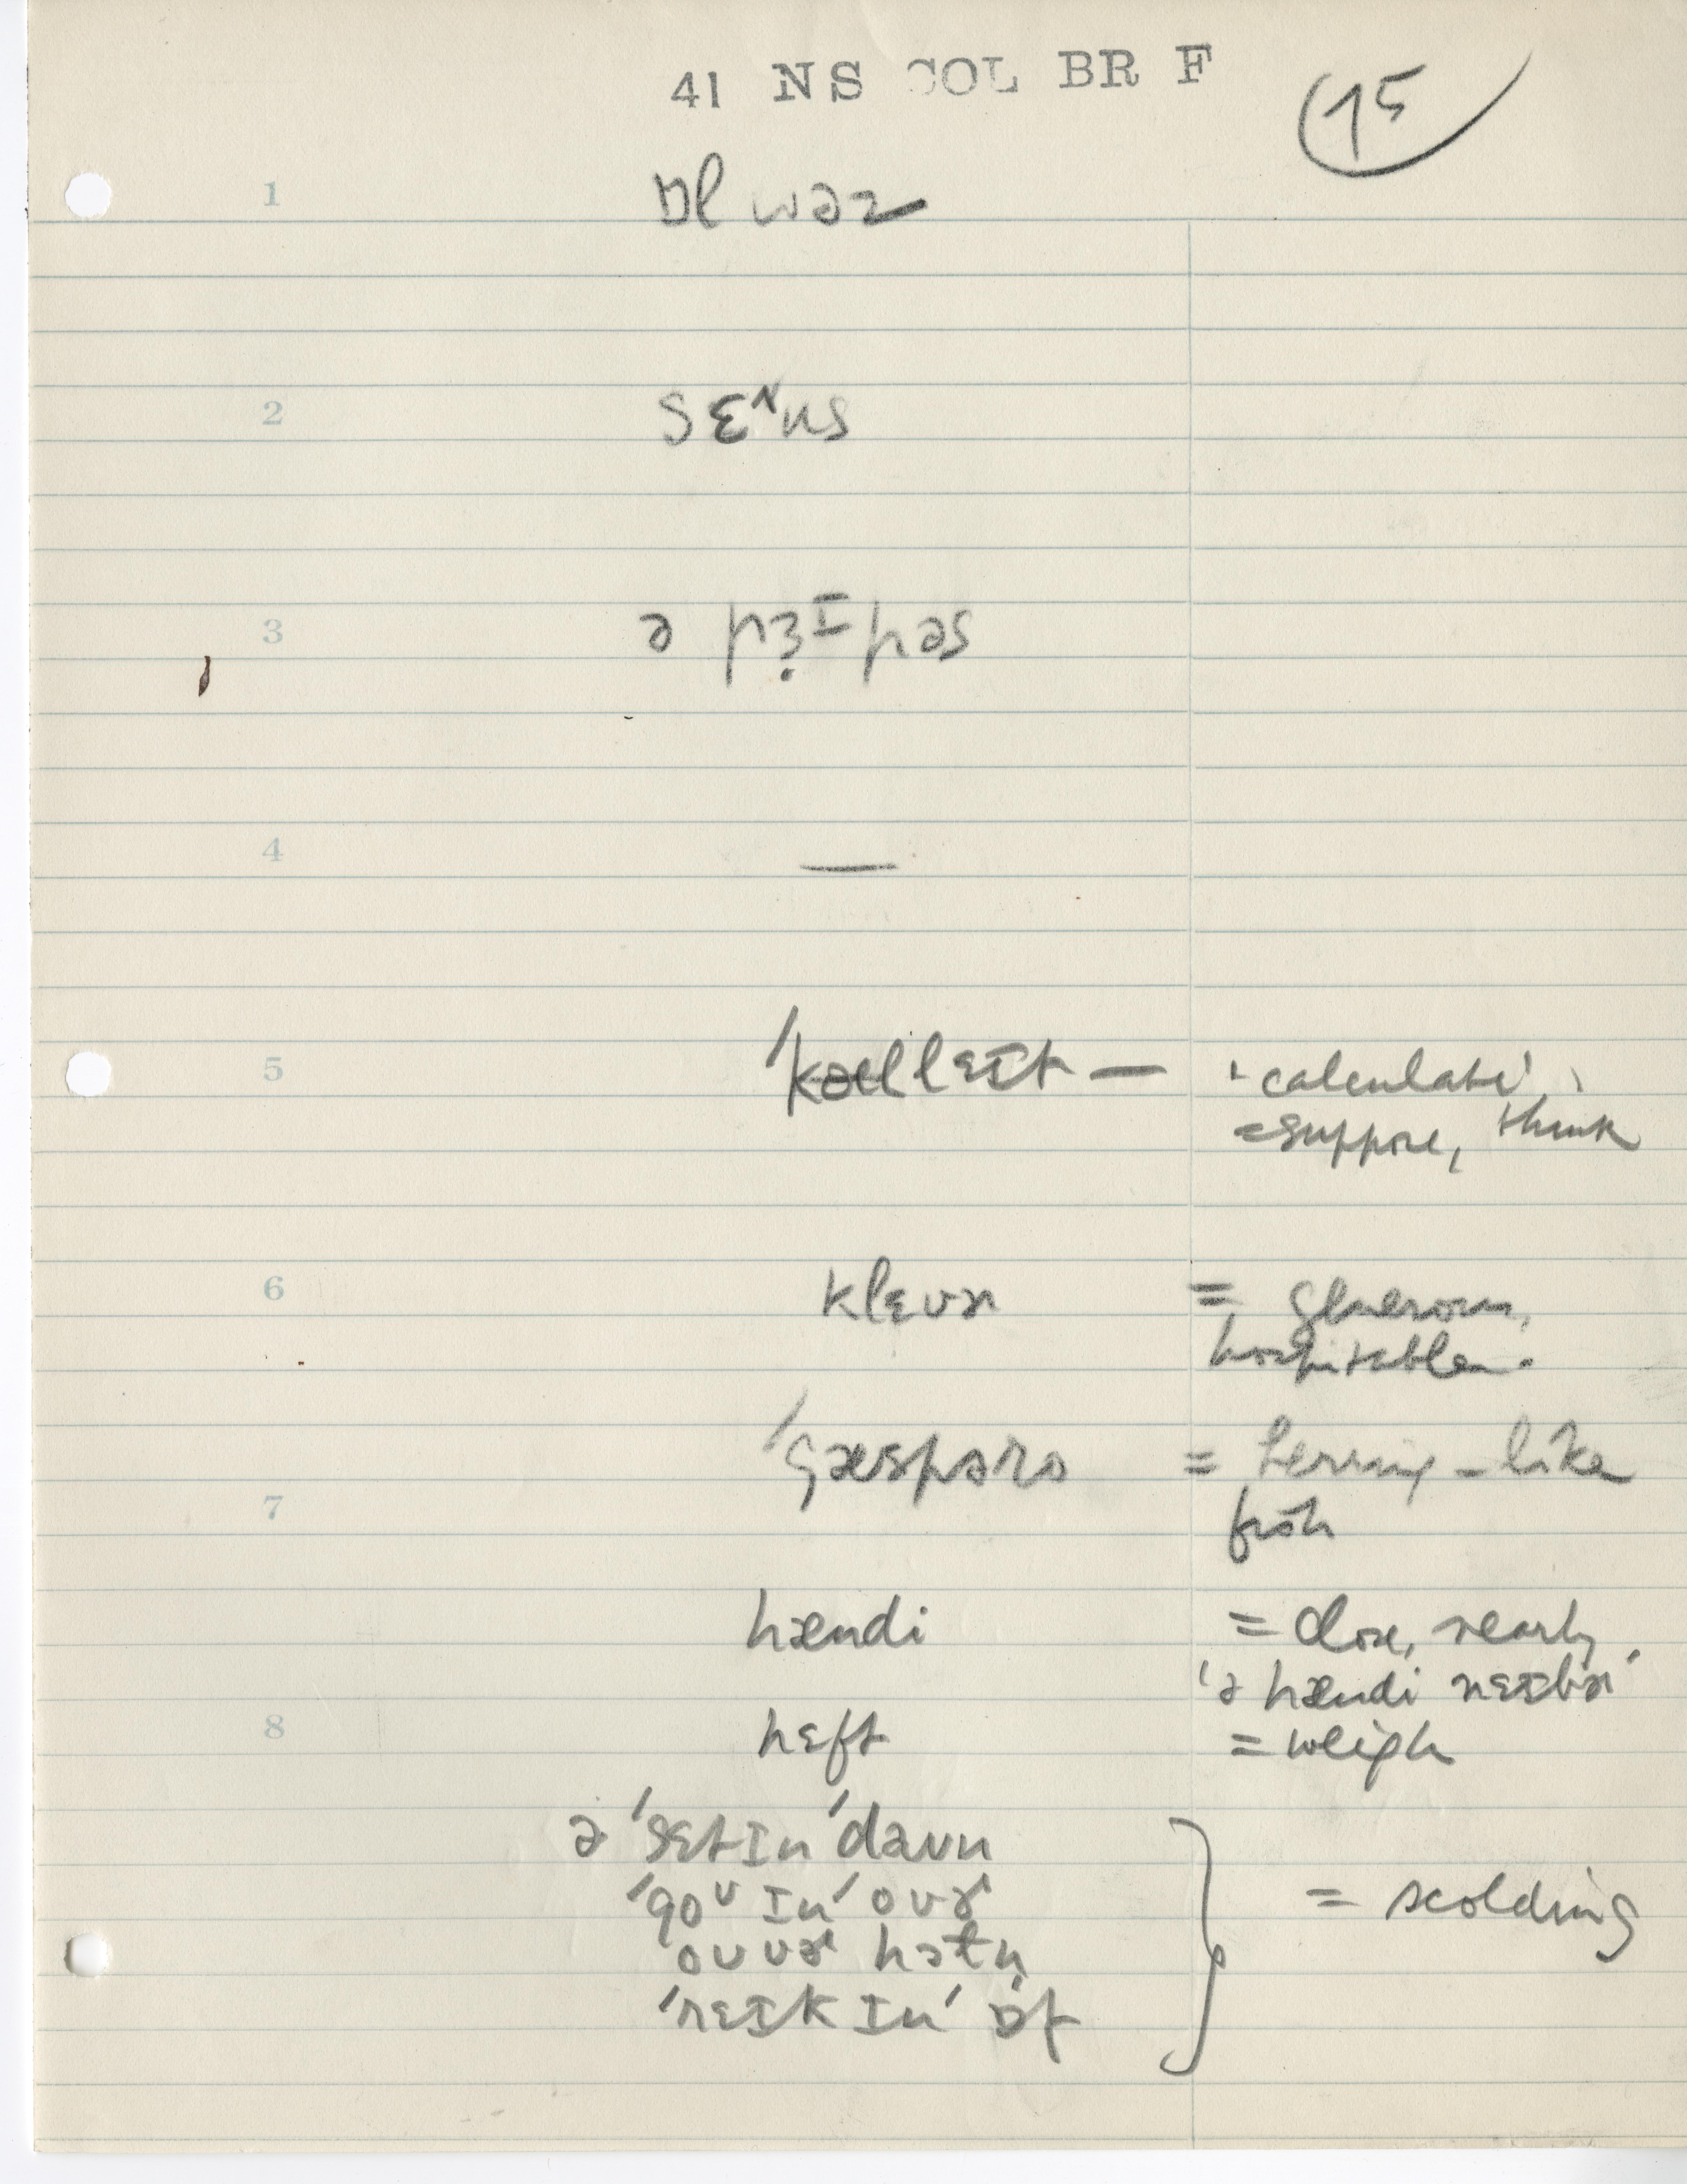 41 NS COL BR F
75
1 ɒl wəz
2 sɛʌns
3 ə pɜɪpəs
4 —
5 ˈkælleɪt — 'calculate'
=suppose, think
6 klɛvɚ = generous,
hospitable.
ˈgæspəro = herring-like
7 fish
hændi = close, nearby
'ə hændi neɪbɚ'
8 hɛft = weigh
ə ˈsɛtɪn ˈdaʊn
ˈgoʊɪn ˈovɚ
ovɚ hɔtn = scolding
ˈreɪkɪn ˈɒf